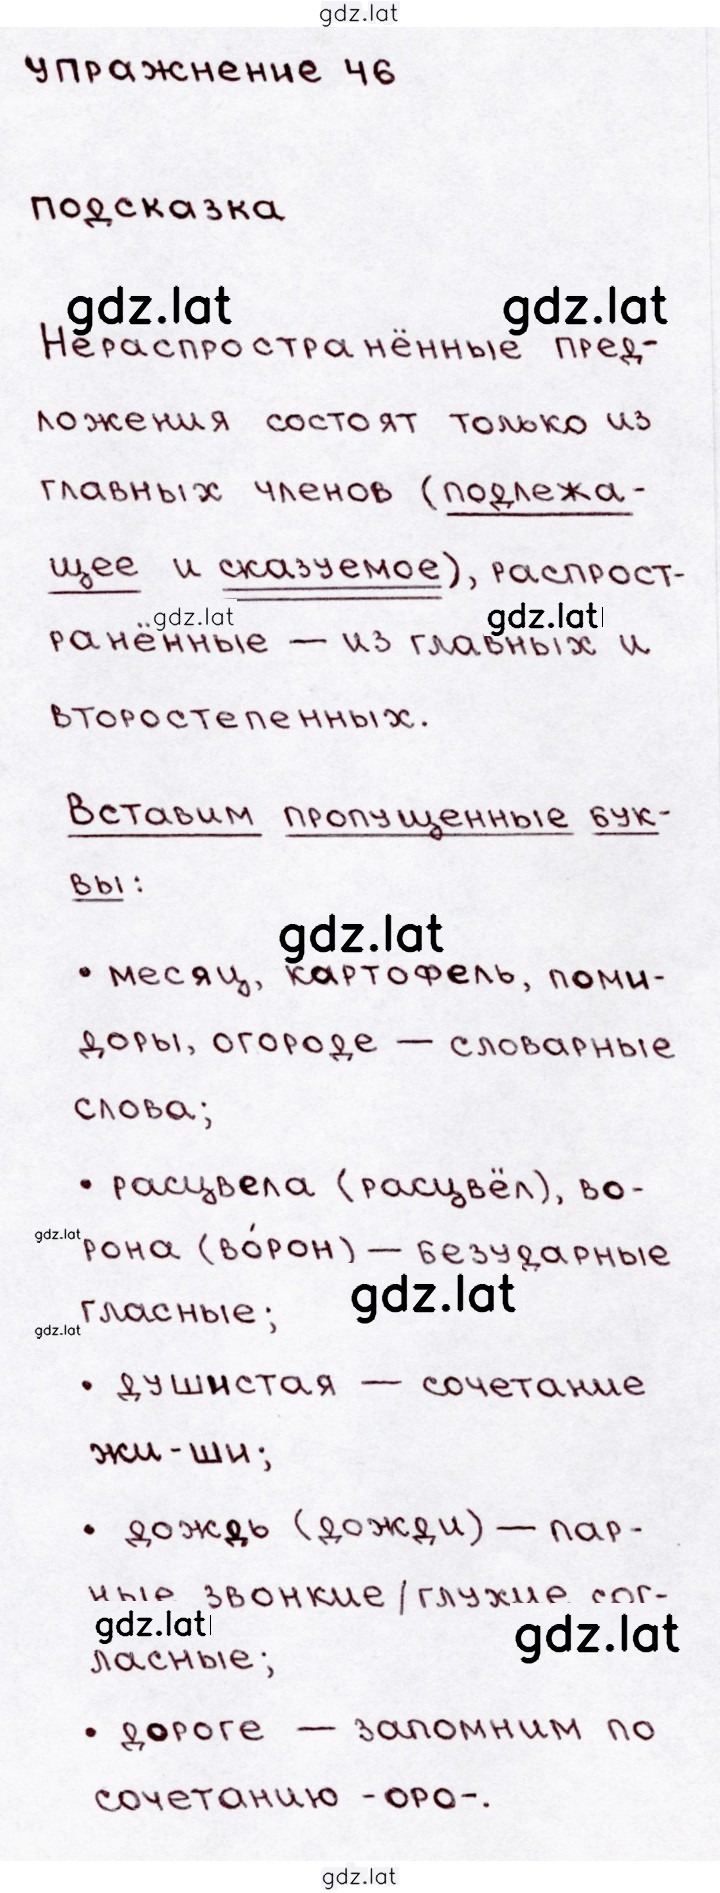 gdz.lat
упражнение 46
подсказка
gdz.lat gdz.lat
Нераспространённые пред-
ложения состоят только из
главных членов (подлежа-
щее и сказуемое), распрост-
gdz.lat gdz.lat
ранённые — из главных и
второстепенных.
Вставим пропущенные бук-
вы:
gdz.lat
• месяц, картофель, поми-
доры, огороде — словарные
слова;
• расцвела (расцвёл), во-
gdz.lat
рона (во́рон) — безударные
gdz.lat
гласные;
gdz.lat
• душистая — сочетание
жи-ши;
• дождь (дожди) — пар-
ные звонкие/глухие сог-
gdz.lat gdz.lat
ласные;
• дороге — запомним по
сочетанию -оро-.
gdz.lat